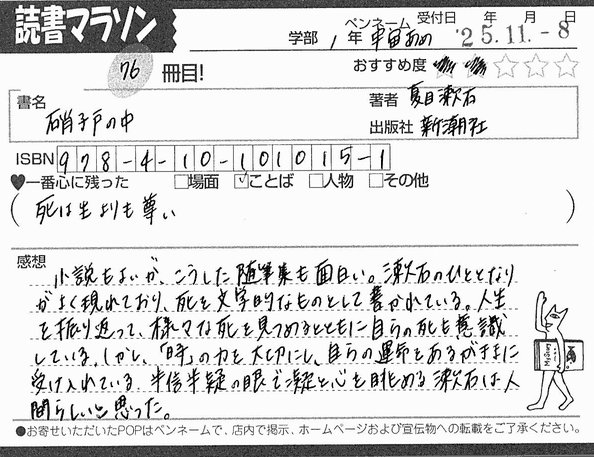 読書マラソン
学部 1年 ペンネーム 車宙あめ 受付日 年 月 日
'25.11.-8
76 冊目!
おすすめ度
書名 硝子戸の中
著者 夏目漱石
出版社 新潮社
ISBN 978-4-10-101015-1
♥一番心に残った □場面 ☑ことば □人物 □その他
(死は生よりも尊い)
感想
小説もよいが、こうした随筆集も面白い。漱石のひととなり
がよく現れており、死を文学的なものとして書かれている。人生
を振り返って、様々な死を見つめるとともに自らの死も意識
している。しかし、「時」の力を大切にし、自らの運命をあるがままに
受け入れている。半信半疑の眼で凝と心を眺める漱石は人
間らしいと思った。
●お寄せいただいたPOPはペンネームで、店内で掲示、ホームページおよび宣伝物への転載をご了承ください。